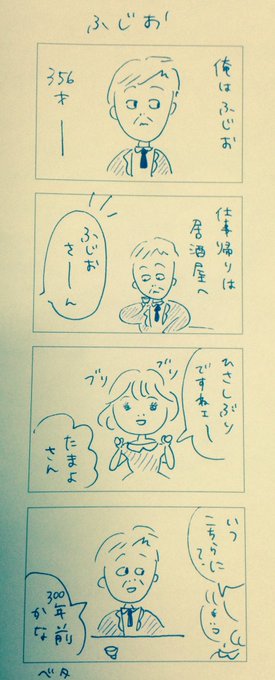 ふじお
俺はふじお
356才ー
仕事帰りは
居酒屋へ
ふじお
さーん
ひさしぶり
ですねェー
ブリ
ブリ
たまよ
さん
いつ
こちらに
300年前
かな
ベタ